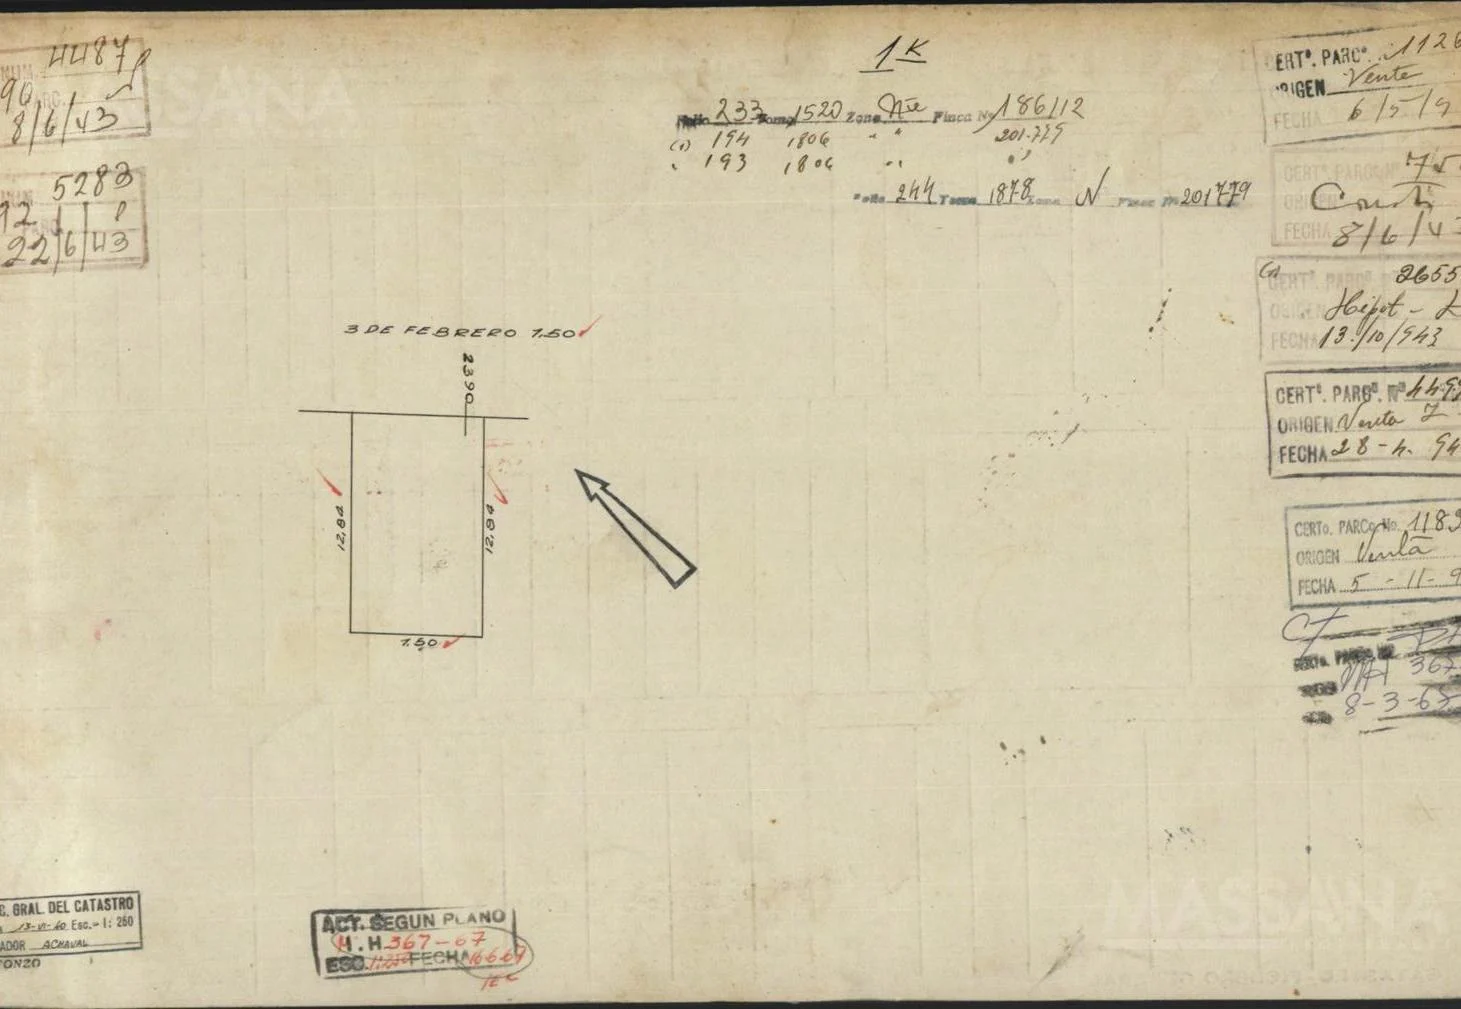 1K
4487
NUM.
90 PARC.
8/6/43
5283
NUM
92
PARC
22/6/43
Folio 233 Tomo 1520 Zona Nte Finca Nº 186112
(1) 194 1806 " " 201.779
" 193 1806 " "
Folio 244 Tomo 1878 Zona N Finca Nº 201779
CERTº. PARCº. 1126
ORIGEN Venta
FECHA 6/5/9
CERTº. PARCº Nº
ORIGEN Const.
FECHA 8/6/4
(1) CERTº. PARCº 2655
ORIGEN Hipot -
FECHA 13/10/943
CERTº. PARCº. Nº 449
ORIGEN Venta
FECHA 28-4. 94
CERTo. PARCo No. 1183
ORIGEN Venta
FECHA 5 - 11 - 9
CERTo. PARCo. Nº
MH 367
8-3-65
3 DE FEBRERO 7.50
2390
12,84
12,84
7.50
C. GRAL. DEL CATASTRO
13-VI-40 Esc.- 1: 250
ADOR ACHAVAL
FONZO
ACT. SEGUN PLANO
M.H 367-67
ESC. 1:250 FECHA 16-6-67